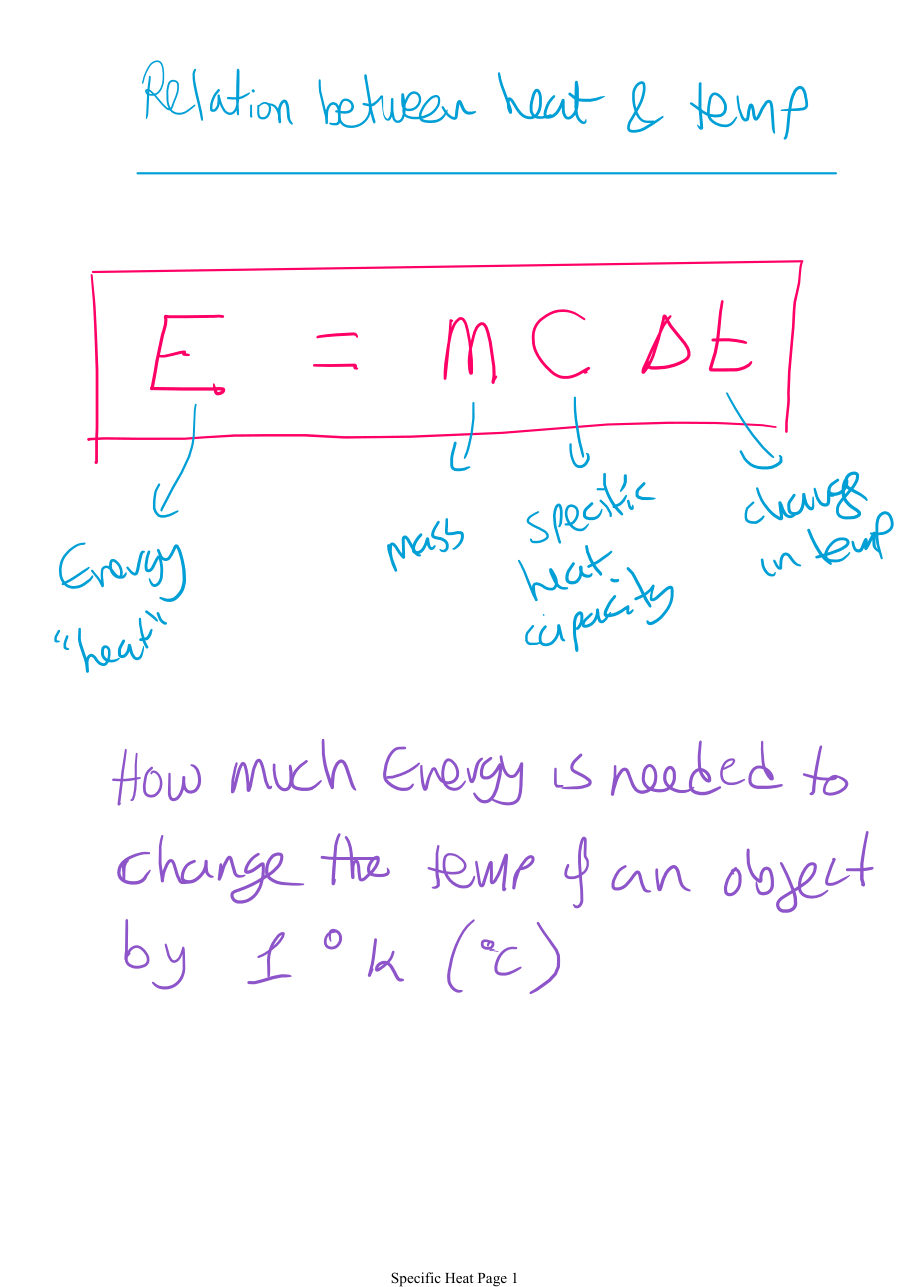 Relation between heat & temp
E = m C Δt
Energy
"heat"
mass
specific
heat
capacity
change
in temp
How much Energy is needed to
change the temp of an object
by 1 °k (°c)
Specific Heat Page 1